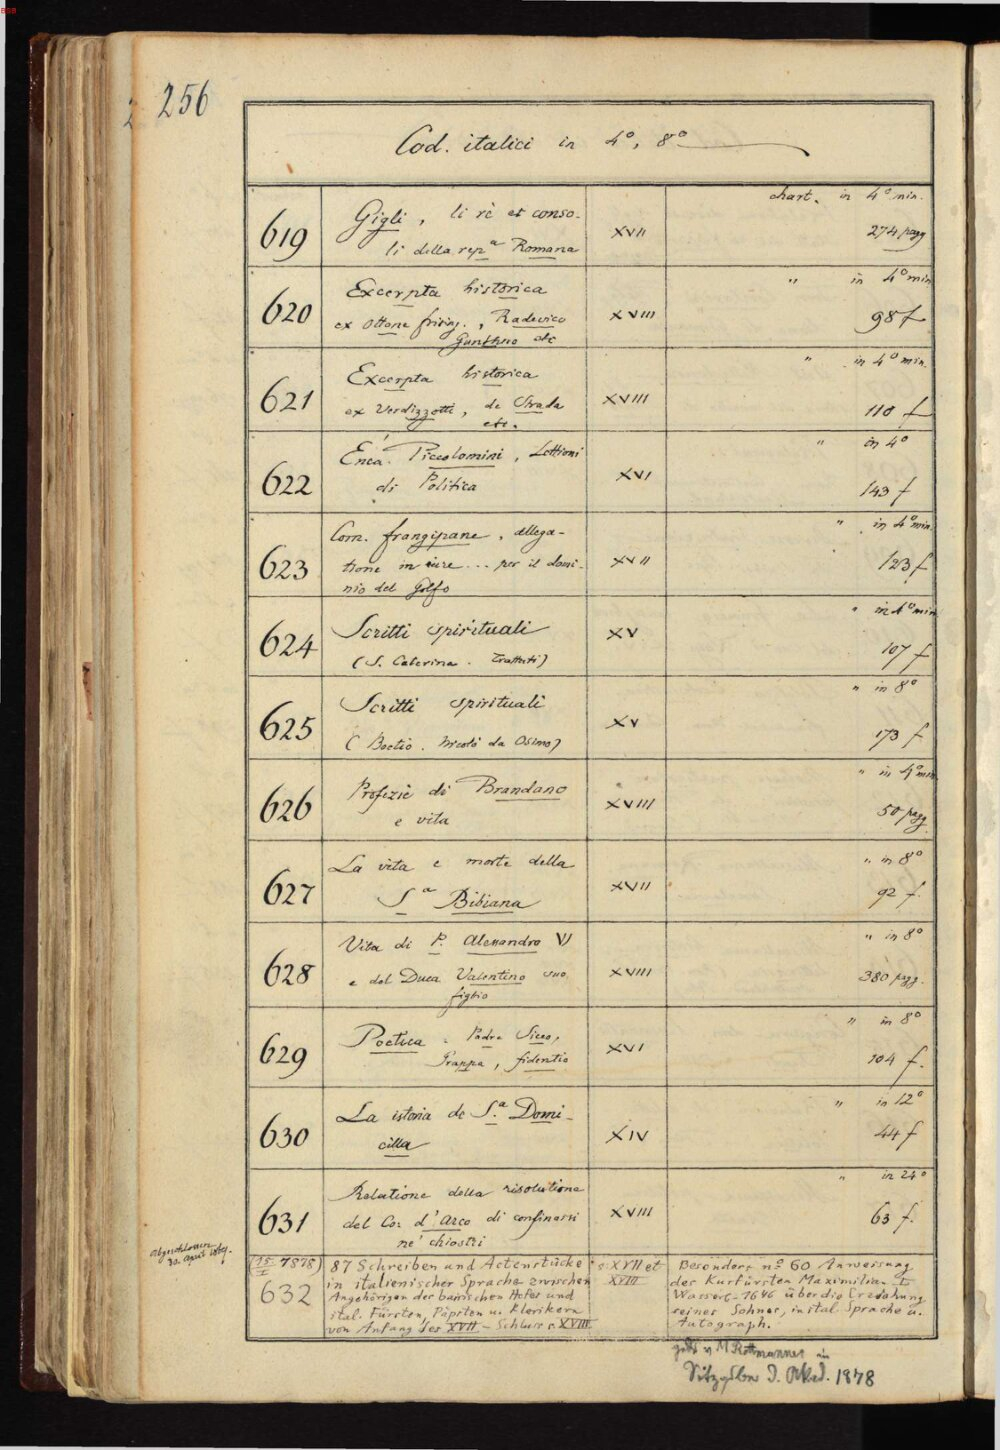 BSB
256
Cod. italici in 4°, 8°
619
Gigli, li rè et conso-
li della rep.ª Romana
XVII
chart. in 4° min.
274 pagg
620
Excerpta historica
ex Ottone frising., Radevico
Gunthero etc
XVIII
" in 4° min
98 f
621
Excerpta historica
ex Verdizzotti, de Strada
etc.
XVIII
" in 4° min.
110 f
622
Enea Piccolomini, Lettioni
di Politica
XVI
" in 4°
143 f
623
Corn. frangipane, allega-
tione in iure ... per il domi-
nio del Golfo
XVII
" in 4° min.
123 f
624
Scritti spirituali
(S. Caterina. Trattati)
XV
" in 4° min
107 f
625
Scritti spirituali
(Boetio. Nicolò da Osimo)
XV
" in 8°
173 f
626
Profezie di Brandano
e vita
XVIII
" in 4° min.
50 pagg
627
La vita e morte della
S.ª Bibiana
XVII
" in 8°
92 f.
628
Vita di P. Alessandro VI
e del Duca Valentino suo
figlio
XVIII
" in 8°
380 pagg.
629
Poetica. Padre Sicco,
Grappa, fidentio
XVI
" in 8°
104 f.
630
La istoria de S.ª Domi-
cilla
XIV
" in 12°
44 f
631
Relatione della risolutione
del Co: d'Arco di confinarsi
ne' chiostri
XVIII
" in 24°
63 f.
abgeschlossen
30. April
632
87 Schreiben und Actenstücke
in italienischer Sprache zwischen
Angehörigen des bairischen Hofes und
ital. Fürsten, Päpsten u. Klerikern
von Anfang des XVII – Schluss s. XVIII
s. XVII et
XVIII
Besonders nº 60 Anweisung
des Kurfürsten Maximilian I.
1646 über die Erziehung
seines Sohnes, in ital. Sprache u.
Autograph.
v M Rottmanner in
d. Akad. 1878